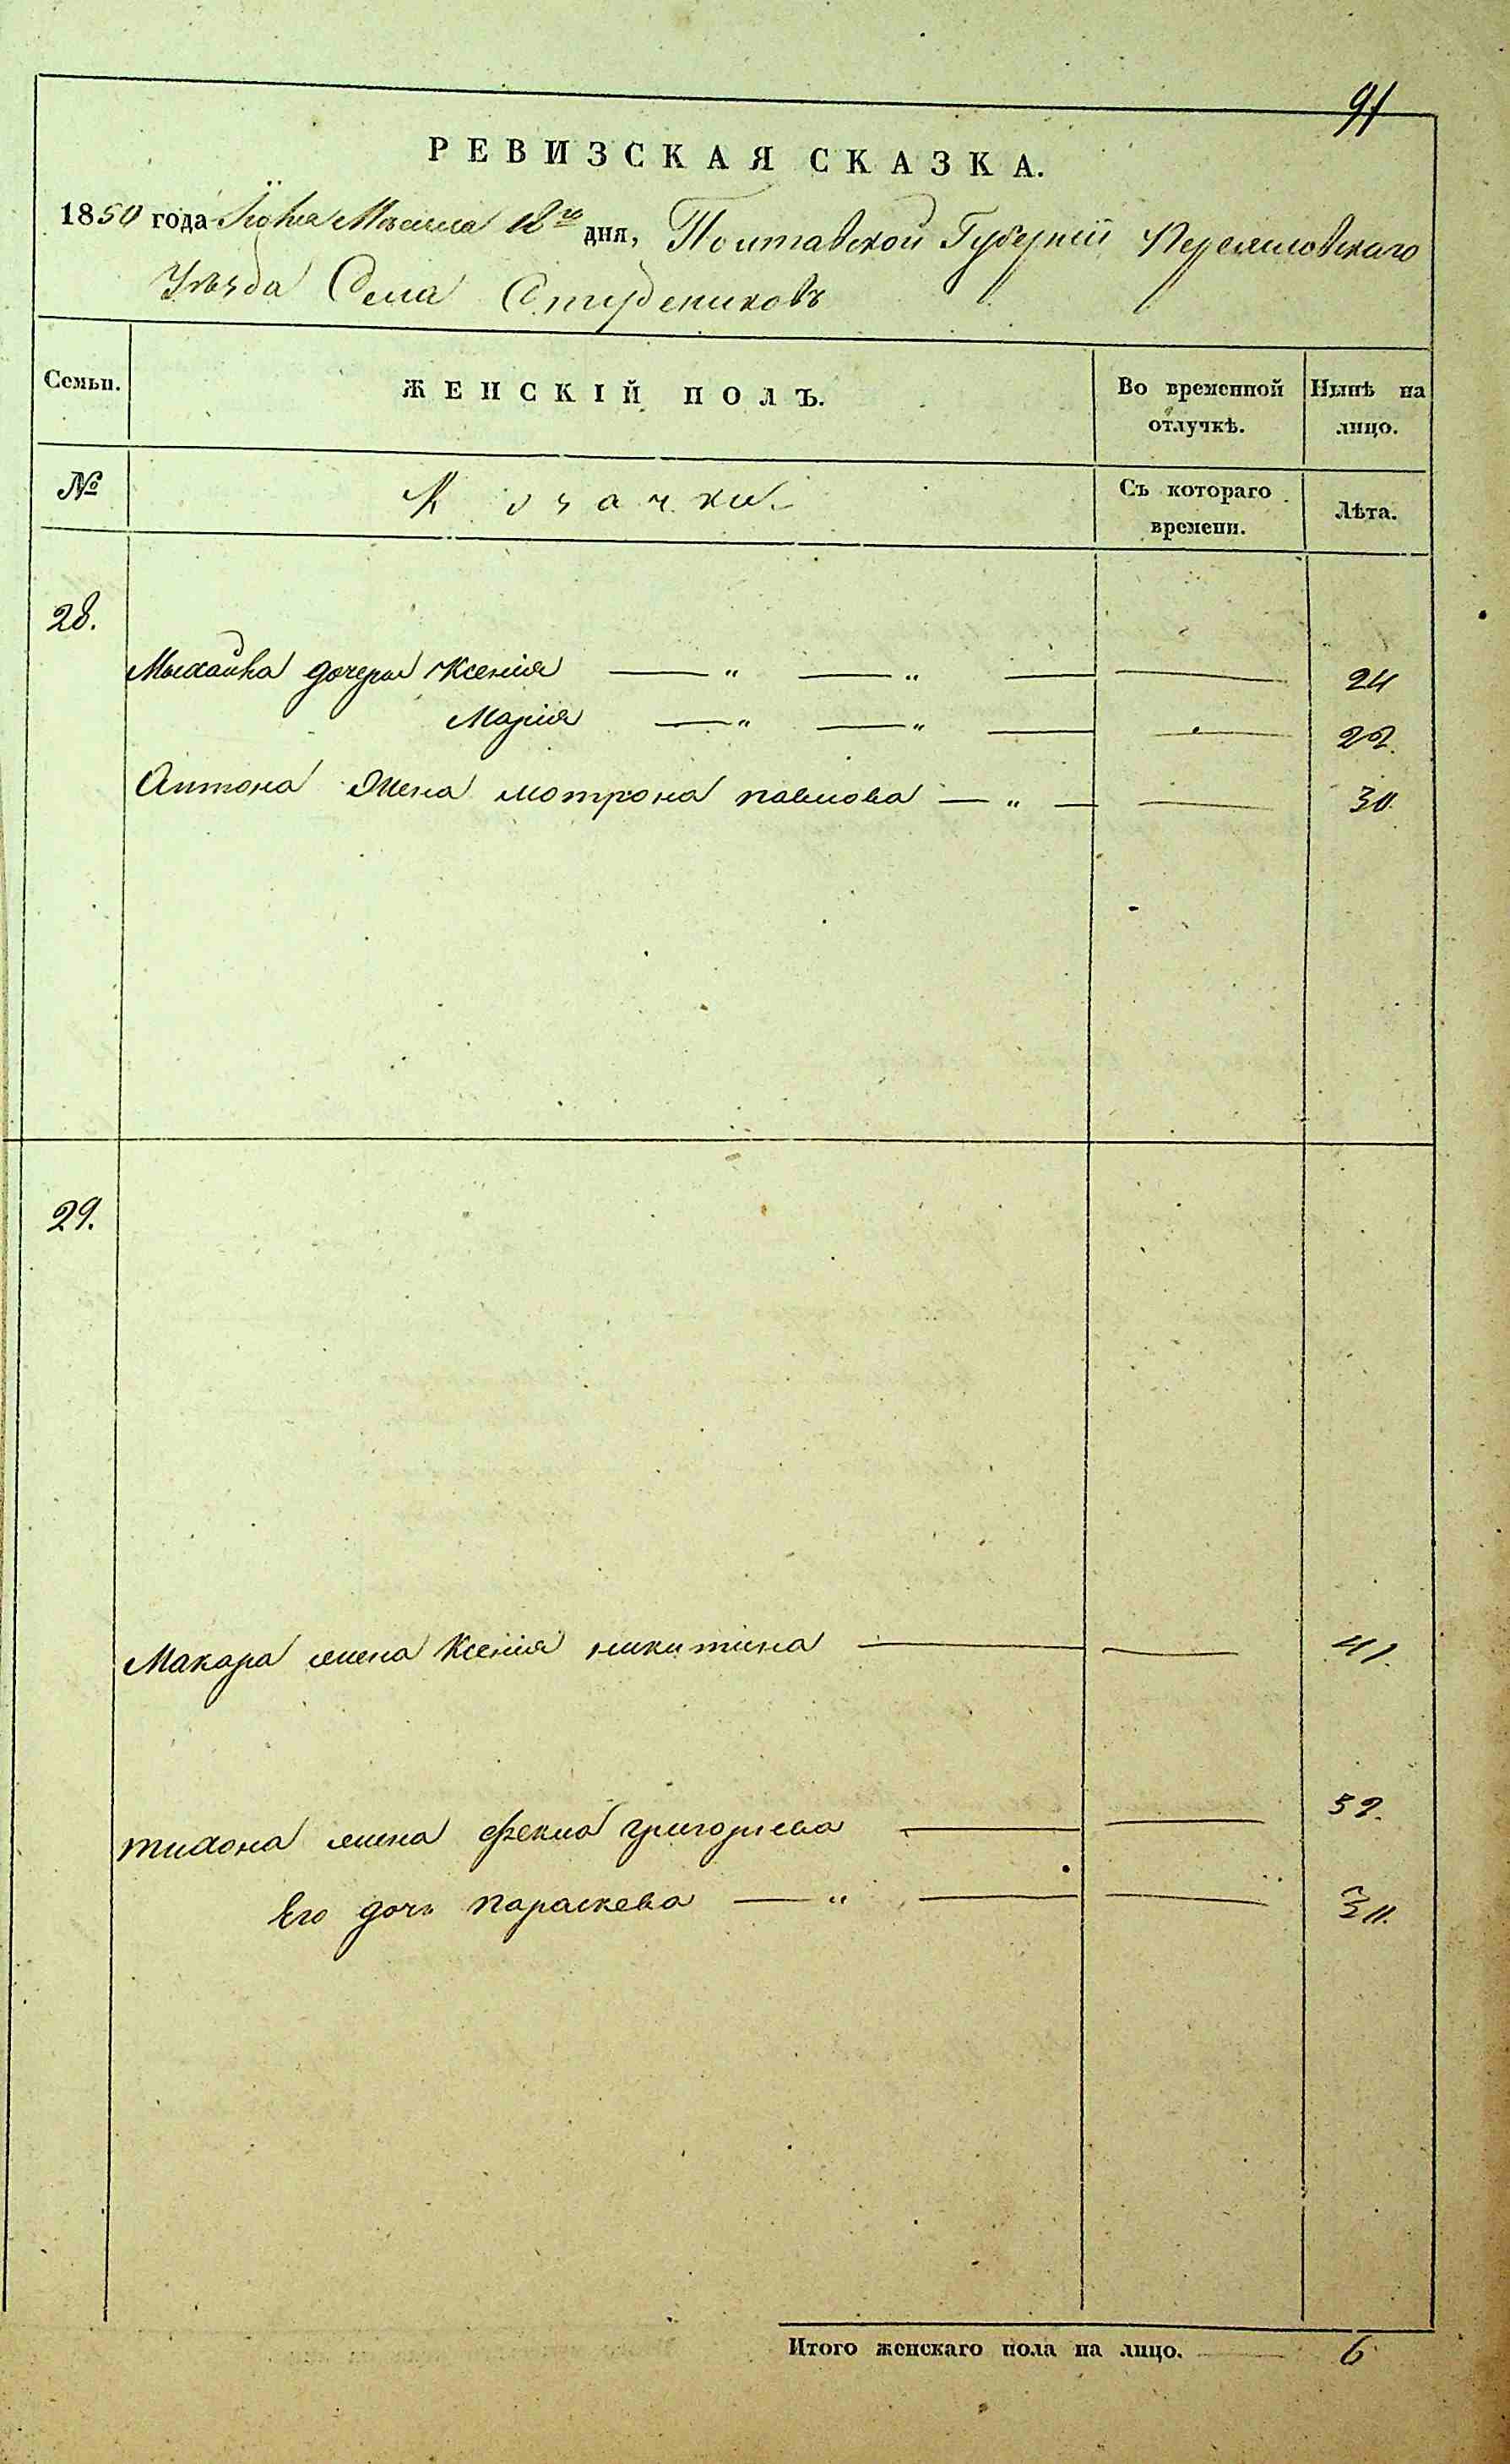 91
РЕВИЗСКАЯ СКАЗКА.
1850 года Іюня Мѣсяца 12го дня, Полтавской Губерніи Переяславскаго
Уѣзда Села Студениковъ
Семьи. ЖЕНСКІЙ ПОЛЪ. Во временной отлучкѣ. Нынѣ на лицо.
№ Козачки Съ котораго времени. Лѣта.
28.
Михайла дочери Ксенія — " — " — — 24
Марія — " — " — — 22.
Антона Жена мотрона павлова — " — — 30.
29.
Макара жена Ксенія никитина — — 41.
тихона жена фекла григориева — — 52.
Его дочь параскева — " — —
Итого женскаго пола на лицо. 6